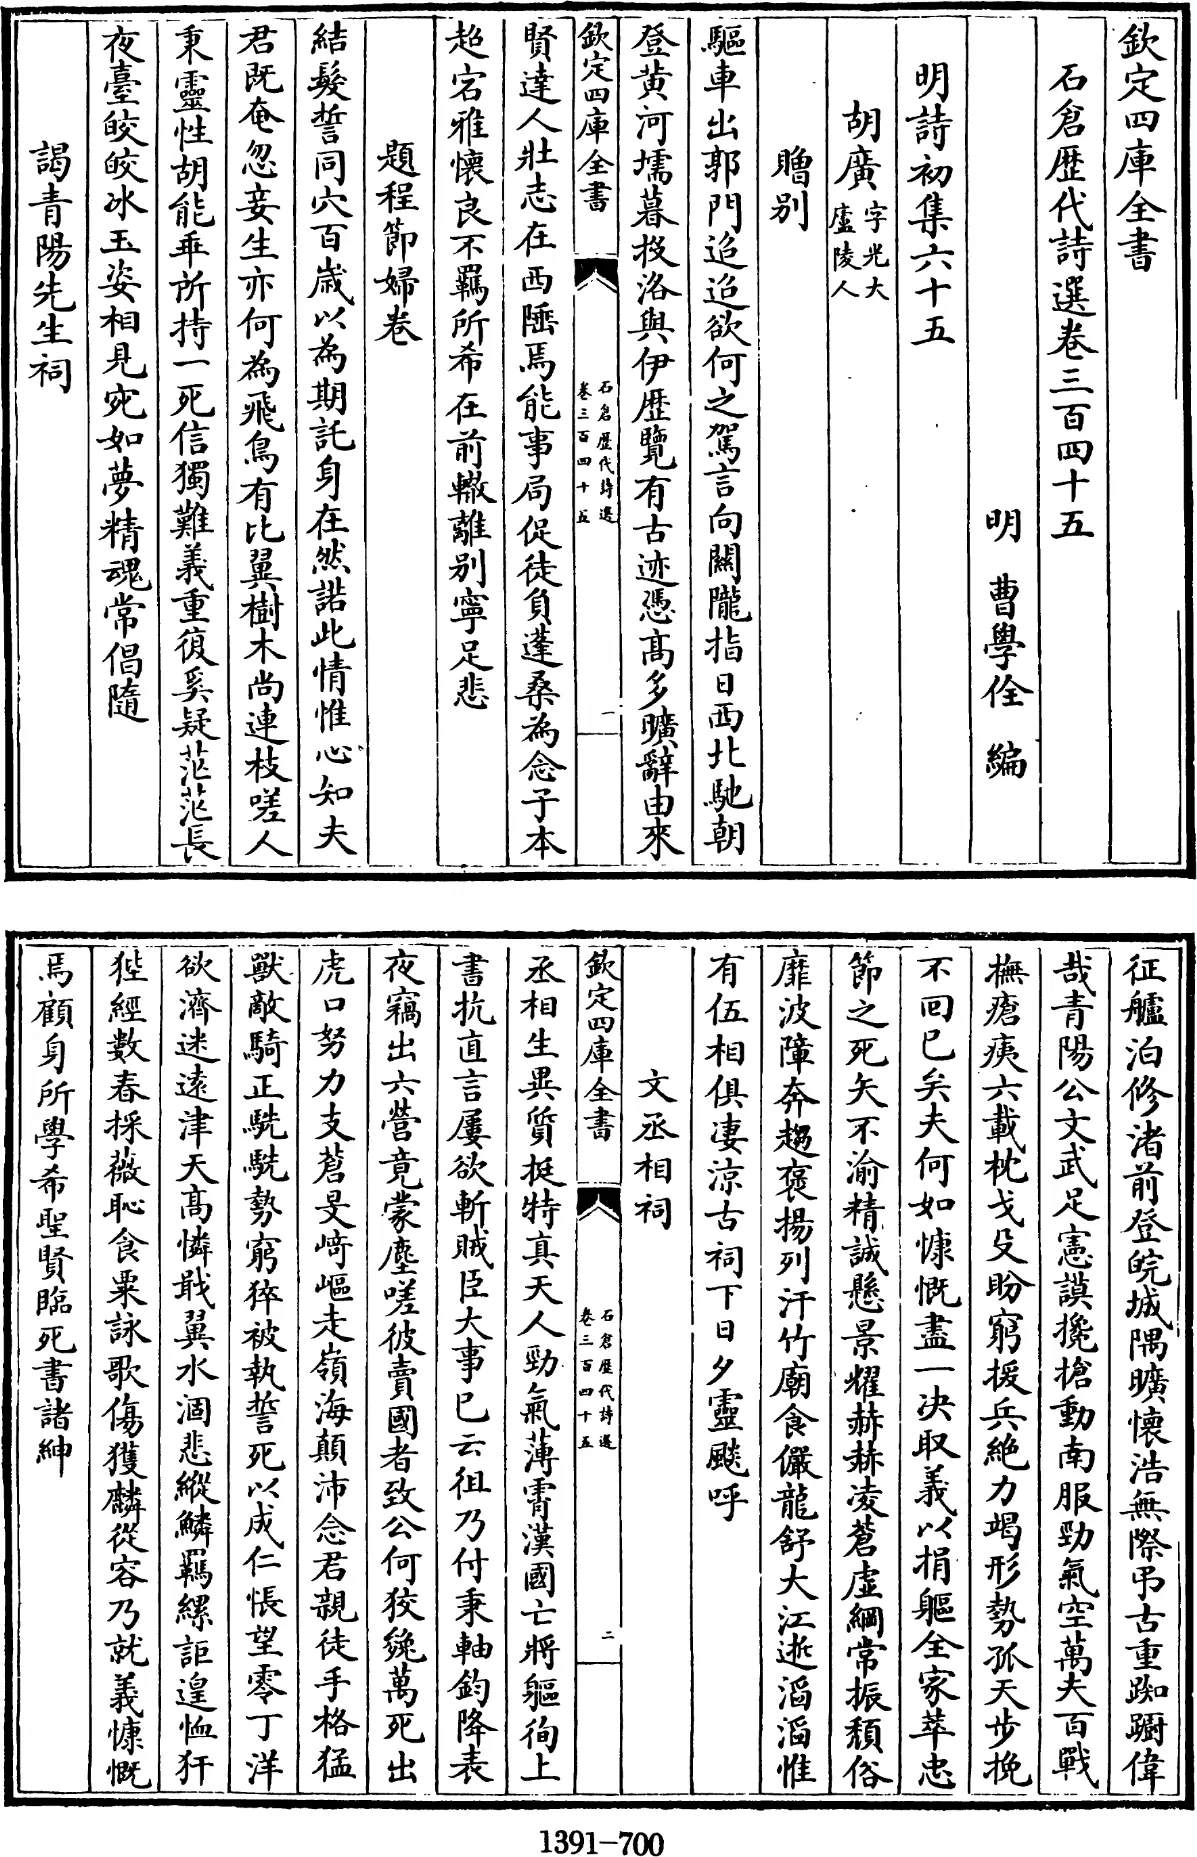 欽定四庫全書
石倉歷代詩選卷三百四十五
明 曹學佺 編
明詩初集六十五
胡廣字光大
廬陵人
贈別
驅車出郭門迢迢欲何之駕言向關隴指日西北馳朝
登黃河壖暮投洛與伊歷覽有古迹憑高多曠辭由來
欽定四庫全書
石倉歷代詩選
卷三百四十五
一
賢達人壯志在西陲焉能事局促徒負蓬桑為念子本
超宕雅懷良不羈所希在前轍離別寧足悲
題程節婦卷
結髮誓同穴百歲以為期託身在然諾此情惟心知夫
君既奄忽妾生亦何為飛鳥有比翼樹木尚連枝嗟人
秉靈性胡能乖所持一死信獨難義重復奚疑茫茫長
夜臺皎皎冰玉姿相見宛如夢精魂常倡隨
謁青陽先生祠
征艫泊修渚前登皖城隅曠懷浩無際弔古重踟躕偉
哉青陽公文武足憲謨攙搶動南服勁氣空萬夫百戰
撫瘡痍六載枕戈殳盼窮援兵絶力竭形勢孤天步挽
不回已矣夫何如慷慨盡一決取義以捐軀全家萃忠
節之死矢不渝精誠懸景耀赫赫凌蒼虛綱常振頹俗
靡波障奔趨褒揚列汗竹廟食儼龍舒大江逝滔滔惟
有伍相俱淒涼古祠下日夕靈颷呼
文丞相祠
欽定四庫全書
石倉歷代詩選
卷三百四十五
二
丞相生異質挺特真天人勁氣薄霄漢國亡將軀徇上
書抗直言屢欲斬賊臣大事已云徂乃付秉軸鈞降表
夜竊出六營竟蒙塵嗟彼賣國者致公何狡㕙萬死出
虎口努力支蒼旻﨑嶇走嶺海顛沛念君親徒手格猛
獸敵騎正駪駪勢窮猝被執誓死以成仁悵望零丁洋
欲濟迷遠津天高憐戢翼水涸悲縱鱗羈縲詎遑恤犴
狴經數春採薇恥食粟詠歌傷獲麟從容乃就義慷慨
焉顧身所學希聖賢臨死書諸紳
1391-700